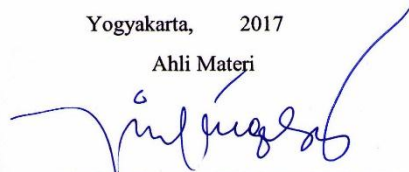 Yogyakarta, 2017
Ahli Materi